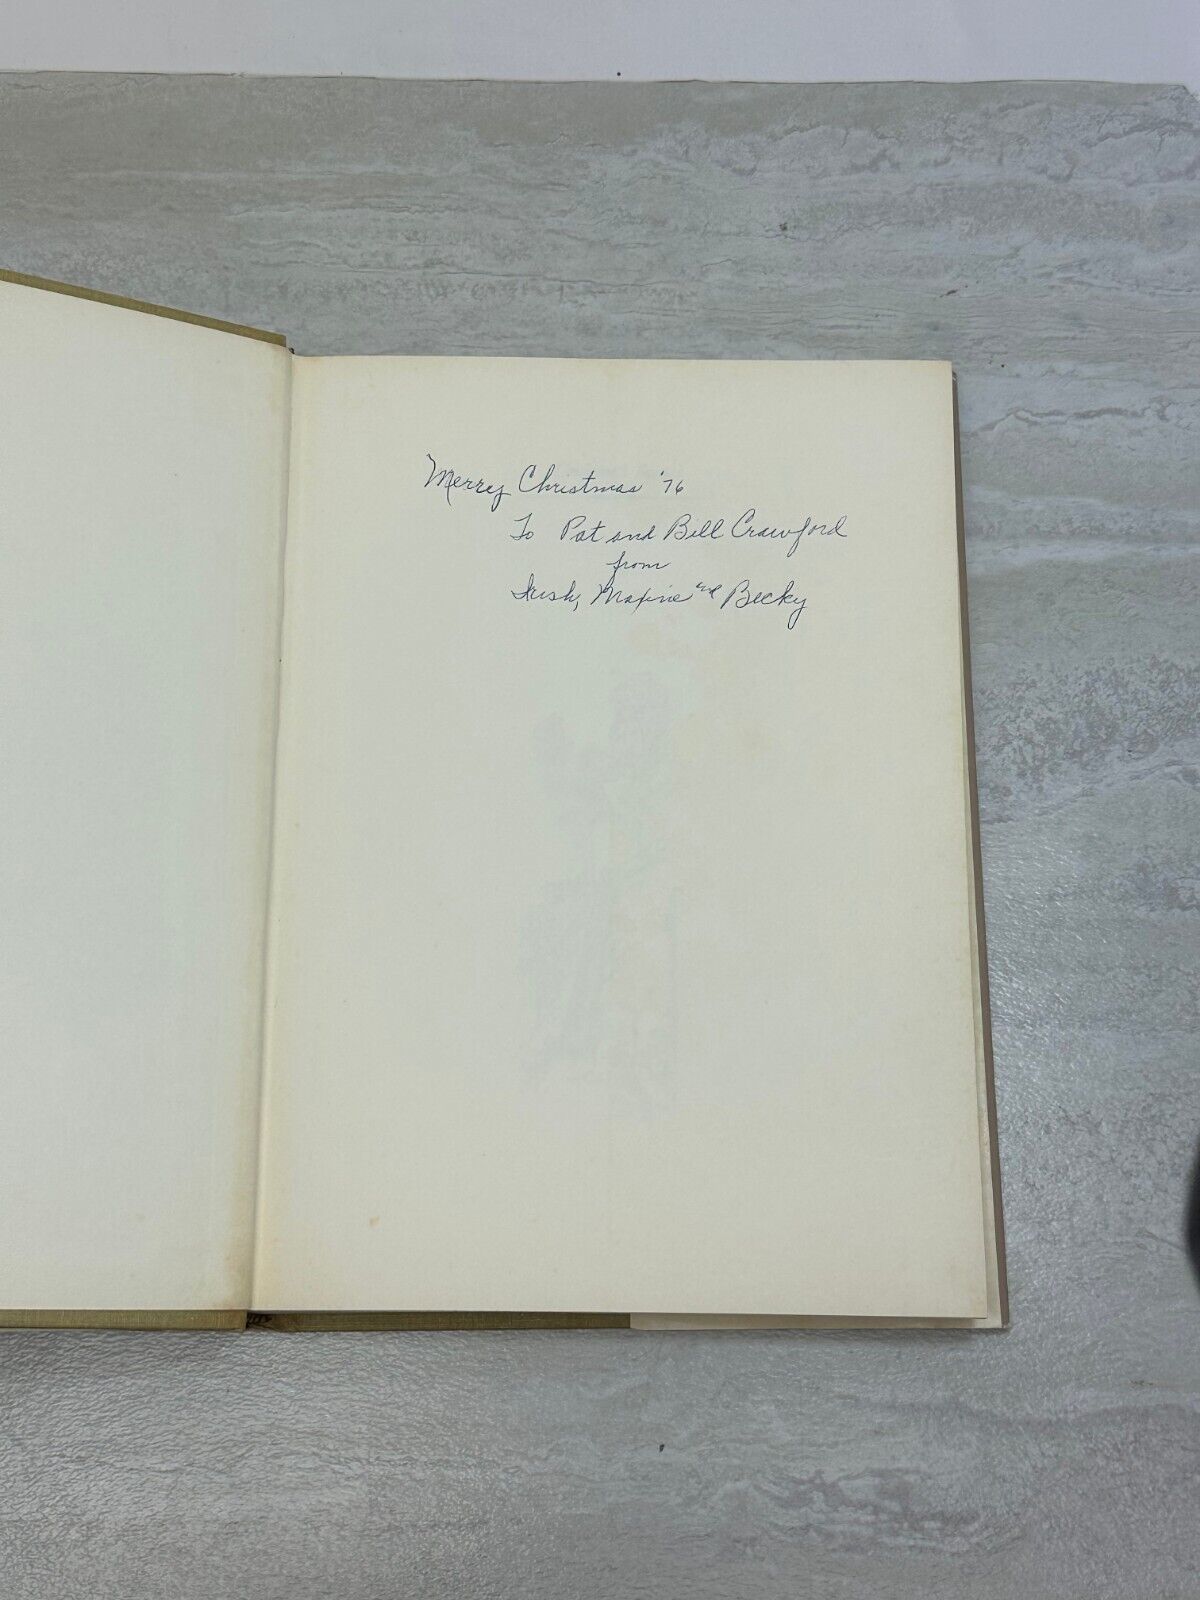 Merry Christmas '76
To Pat and Bill Crawford
from
Irish, Maxine and Becky